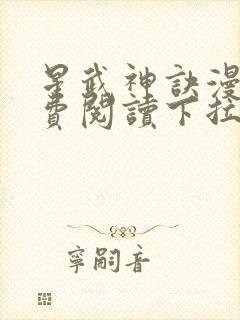 星武神訣漫
費閱讀下拉
寧嗣音